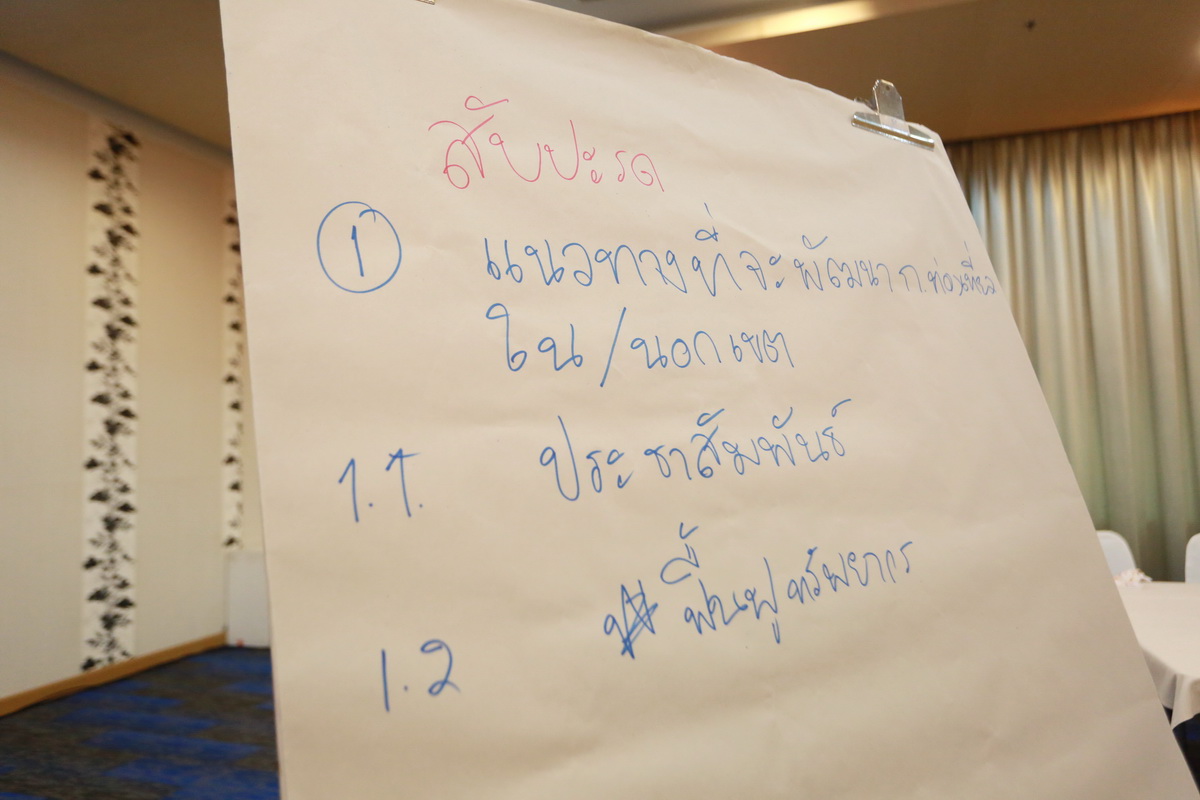 สับปะรด
① แนวทางที่จะพัฒนา ก.ท่องเที่ยว
ใน/นอกเขต
1.1. ประชาสัมพันธ์
1.2 ฟื้นฟูทรัพยากร